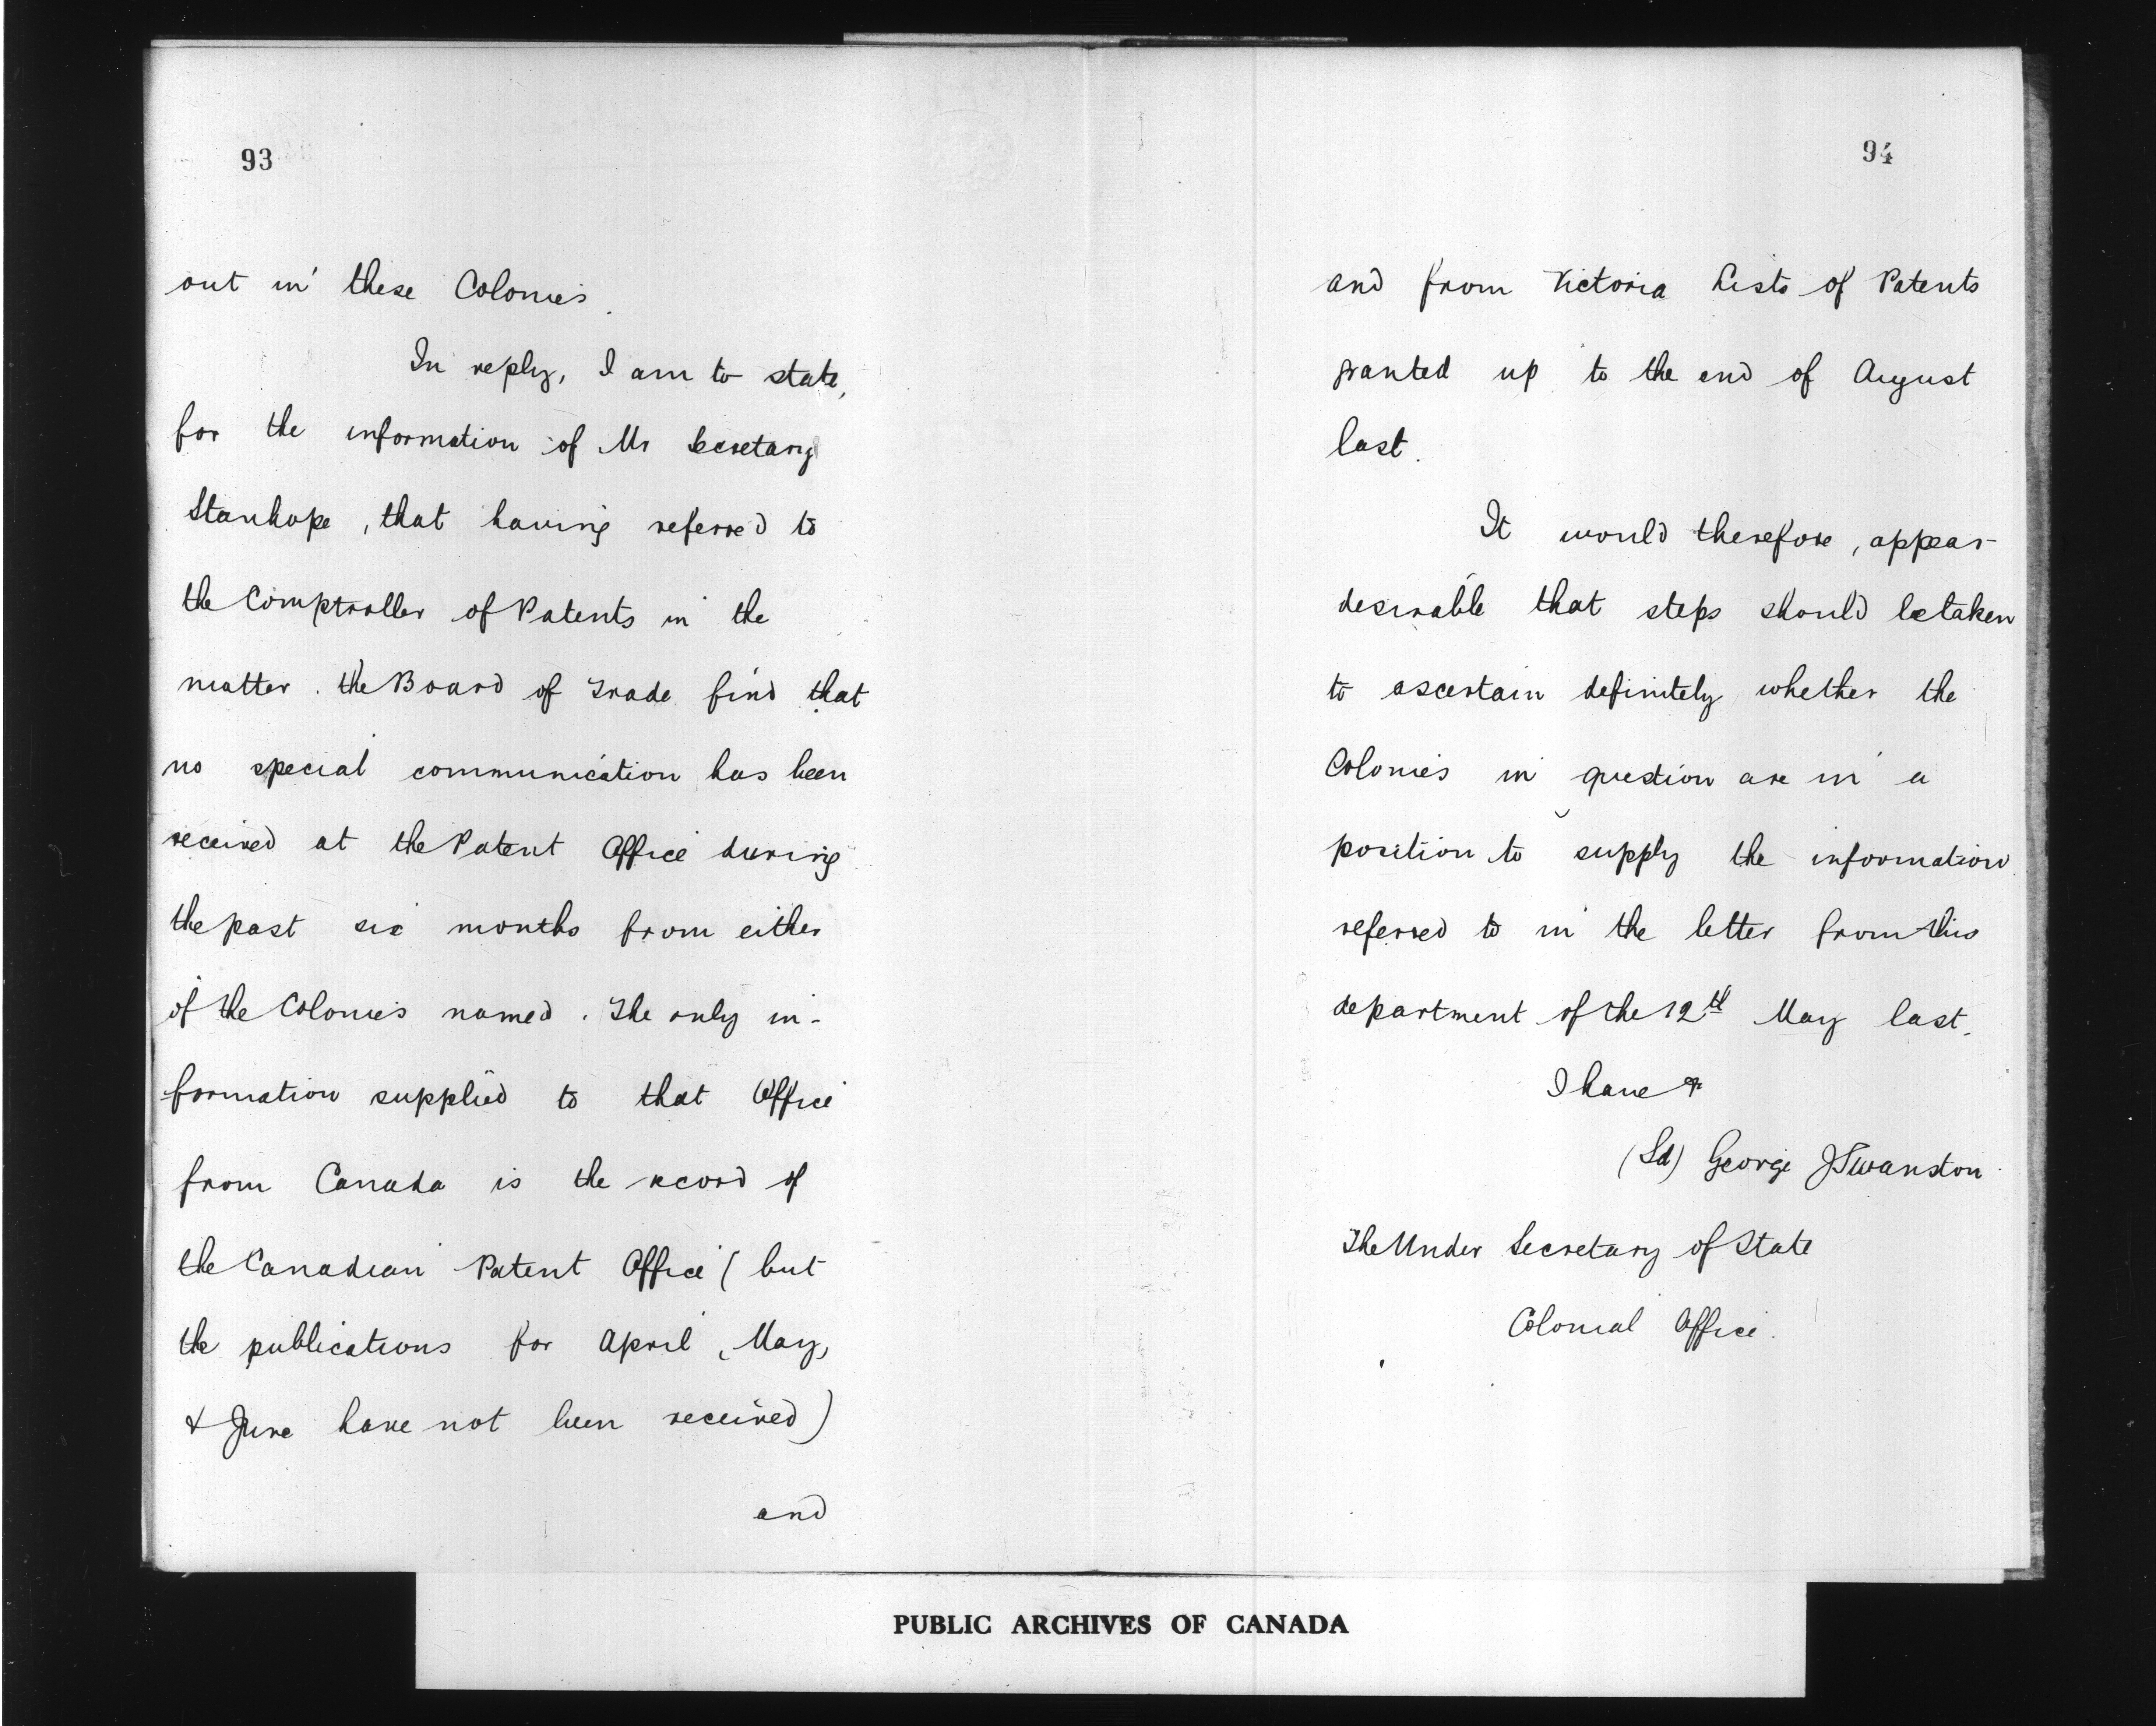 93
out in these Colonies.
In reply, I am to state,
for the information of Mr Secretary
Stanhope, that having referred to
the Comptroller of Patents in the
matter. the Board of Trade find that
no special communication has been
received at the Patent Office during
the past six months from either
of the Colonies named. The only in-
formation supplied to that Office
from Canada is the record of
the Canadian Patent Office (but
the publications for April, May,
& June have not been received)
and
94
and from Victoria Lists of Patents
granted up to the end of August
last.
It would therefore, appear
desirable that steps should be taken
to ascertain definitely whether the
Colonies in question are in a
position to supply the information
referred to in the letter from this
department of the 12th May last.
I have &
(Sd) George J Swanston
The Under Secretary of State
Colonial Office.
PUBLIC ARCHIVES OF CANADA